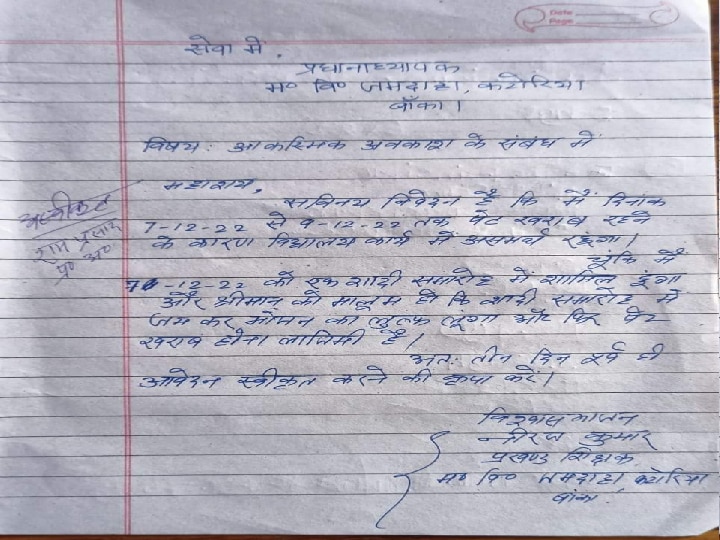 Date
Page
सेवा में,
प्रधानाध्यापक
म० वि० जमदाहा, कटोरिया
बाँका।
विषय: आकस्मिक अवकाश के संबंध में
महाशय,
सविनय निवेदन है कि मैं दिनांक
7-12-22 से 9-12-22 तक पेट खराब रहने
के कारण विद्यालय कार्य में असमर्थ रहूंगा।
चूंकि मैं
-12-22 को एक शादी समारोह में शामिल हूंगा
और श्रीमान को मालूम हो कि शादी समारोह में
जम कर भोजन का लुत्फ लूंगा और फिर पेट
खराब होना लाजिमी है।
अतः तीन दिन पूर्व ही
आवेदन स्वीकृत करने की कृपा करें।
विश्वासभाजन
नीरज कुमार
प्रखण्ड शिक्षक
म० वि० जमदाहा, कटोरिया
बांका
प्र० अ०